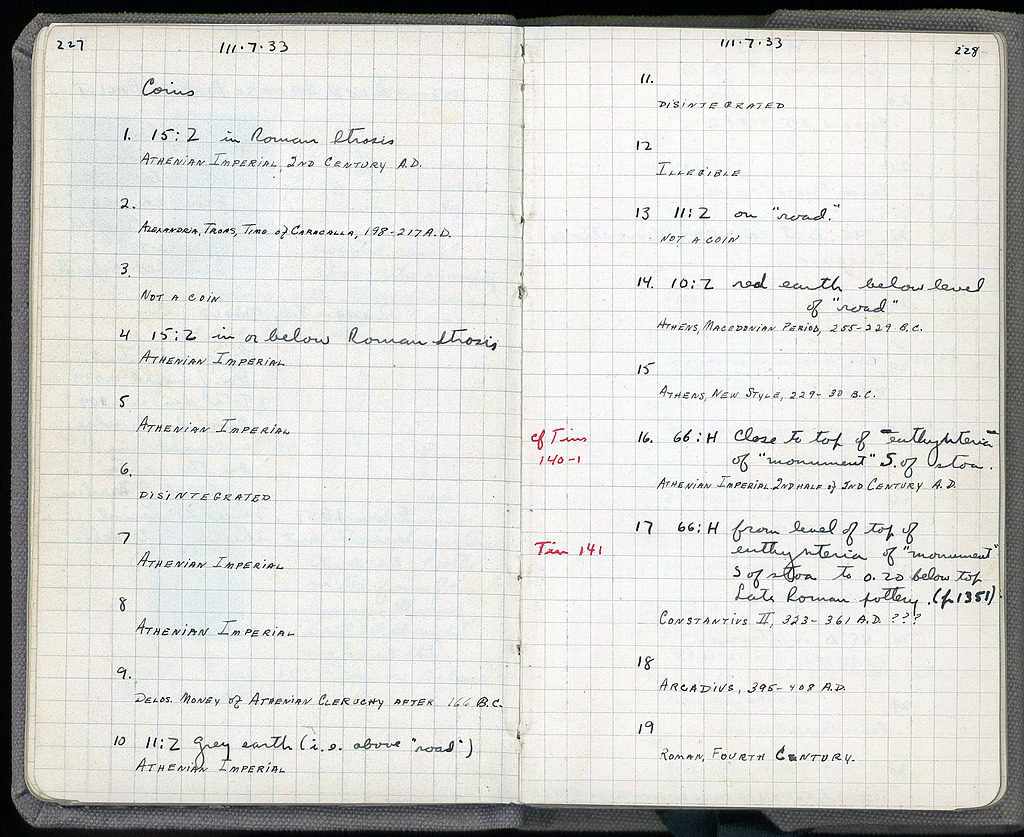 227
111·7·33
Coins
1. 15:Z in Roman Strosis
ATHENIAN IMPERIAL, 2ND CENTURY A.D.
2.
ALEXANDRIA, TROAS, TIME of CARACALLA, 198-217 A.D.
3.
NOT A COIN
4 15:Z in or below Roman strosis
ATHENIAN IMPERIAL
5
ATHENIAN IMPERIAL
6.
DISINTEGRATED
7
ATHENIAN IMPERIAL
8
ATHENIAN IMPERIAL
9.
DELOS. MONEY of ATHENIAN CLERUCHY AFTER 166 B.C.
10 11:Z Grey earth (i.e. above "road")
ATHENIAN IMPERIAL
111·7·33
228
11.
DISINTEGRATED
12
ILLEGIBLE
13 11:Z on "road."
NOT A COIN
14. 10:Z red earth below level
of "road"
ATHENS, MACEDONIAN PERIOD, 255-229 B.C.
15
ATHENS, NEW STYLE, 229-30 B.C.
cf Tins
140-1
16. 66:H Close to top of "euthynteria"
of "monument" S. of stoa.
ATHENIAN IMPERIAL 2ND HALF of 2ND CENTURY A.D.
Tin 141
17 66:H from level of top of
euthynteria of "monument"
S of stoa to 0.20 below top
Late Roman pottery. (p 1351).
CONSTANTIUS II, 323-361 A.D. ???
18
ARCADIUS, 395-408 A.D.
19
ROMAN, FOURTH CENTURY.